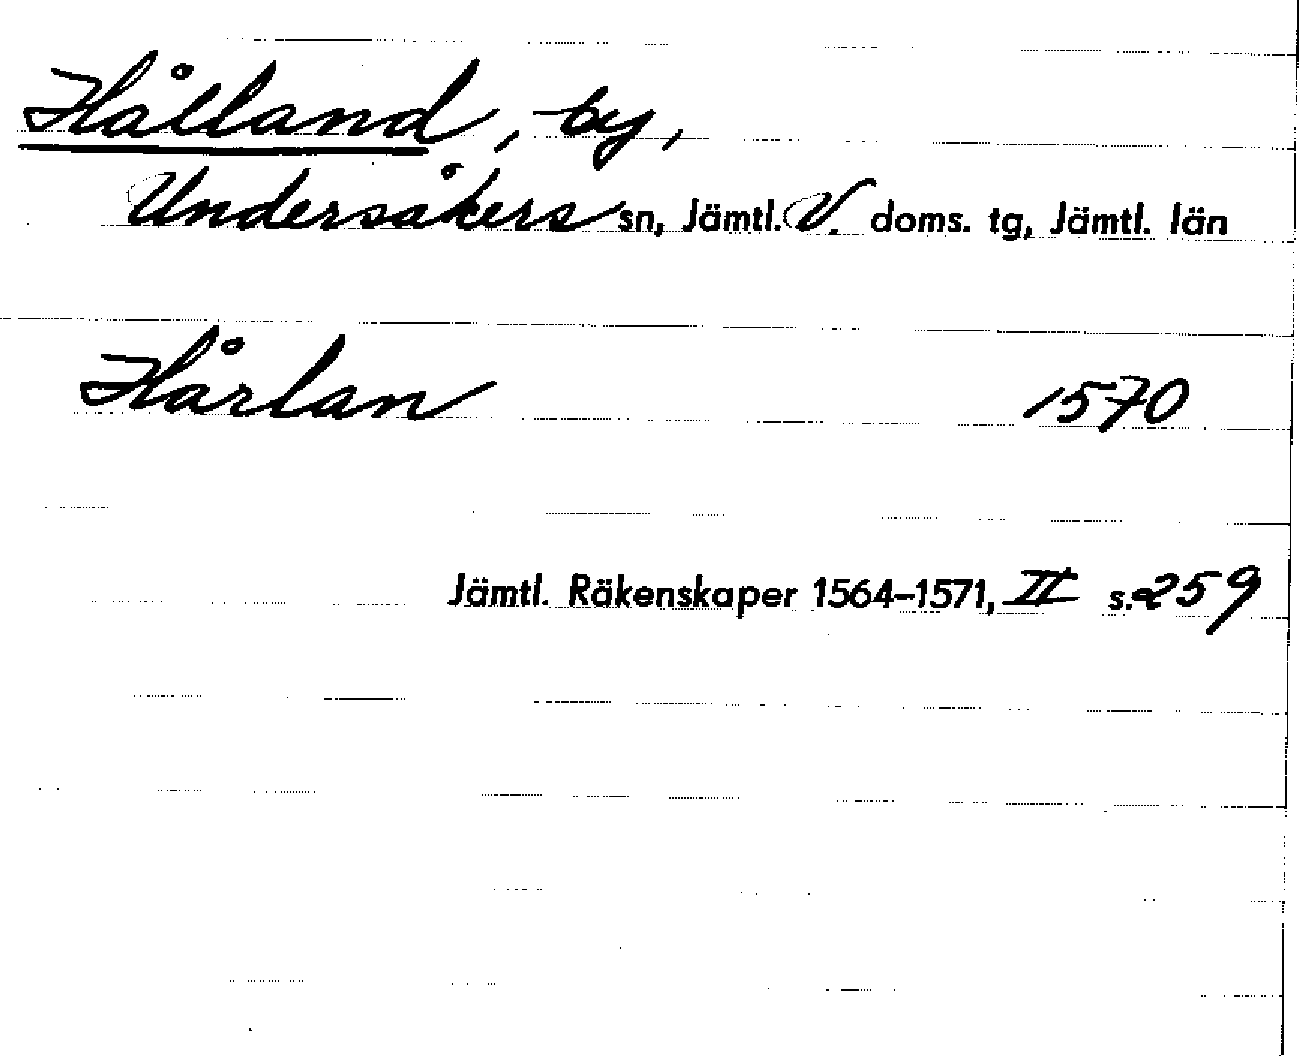 Hålland, by,
Undersåkers sn, Jämtl. V. doms. tg, Jämtl. län
Hårlan 1570
Jämtl. Räkenskaper 1564–1571, II s. 259